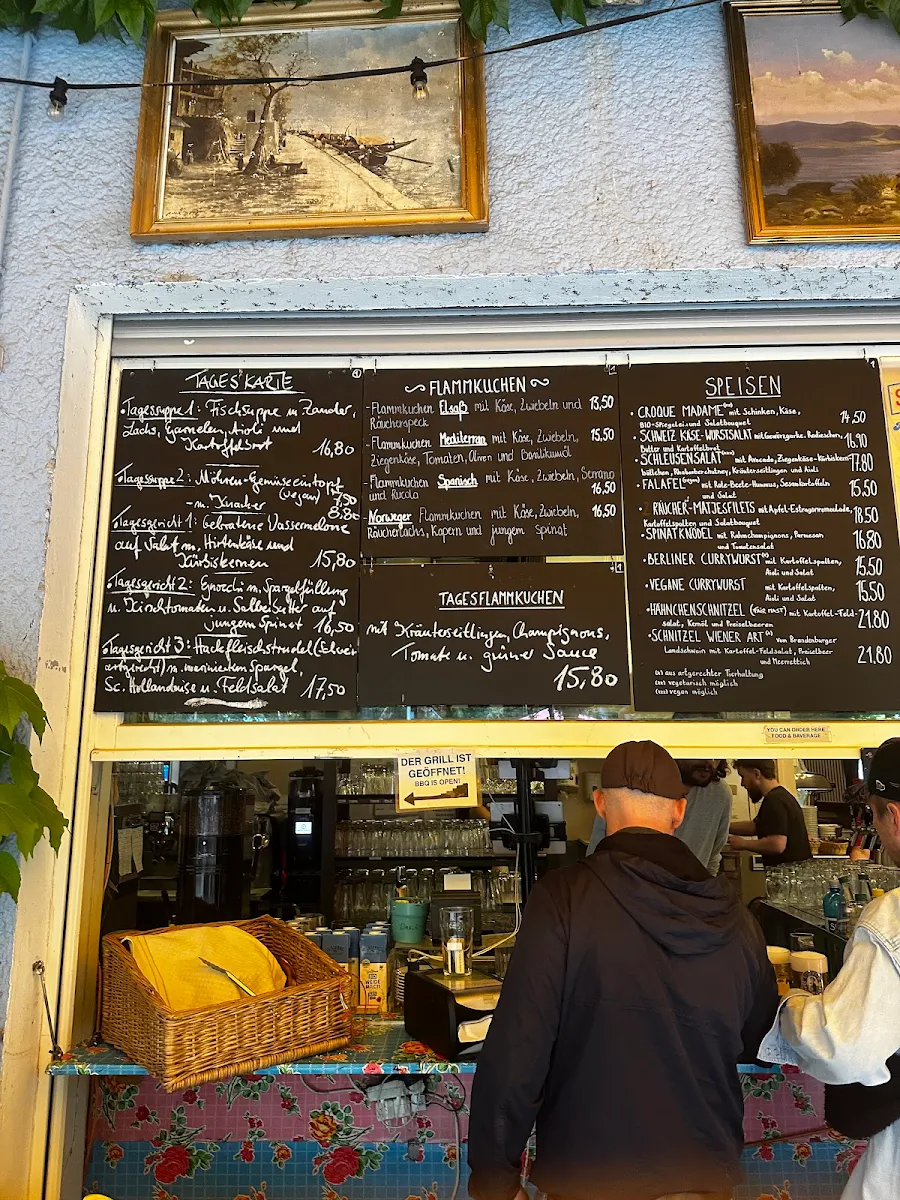 TAGESKARTE
• Tagessuppe 1: Fischsuppe m Zander,
Lachs, Garnelen, Aioli und
Kartoffelbrot 16,80
Tagessuppe 2: Möhren-Gemüseeintopf
(vegan) 7,50
- m. Knacker 8,80
Tagesgericht 1: Gebratene Wassermelone
auf Salat m. Hirtenkäse und
Kürbiskernen 15,80
• Tagesgericht 2: Gnocchi m. Spargelfüllung
u. Kirschtomaten u. Salbeibutter auf
jungem Spinat 16,50
Tagesgericht 3: Hackfleischstrudel (Schwein
m. mariniertem Spargel,
Sc. Hollandaise u. Feldsalat 17,50
~ FLAMMKUCHEN ~
- Flammkuchen Elsaß mit Käse, Zwiebeln und 13,50
Räucherspeck
- Flammkuchen Mediterran mit Käse, Zwiebeln, 15,50
Ziegenkäse, Tomaten, Oliven und Basilikumöl
- Flammkuchen Spanisch mit Käse, Zwiebeln, Serrano
und Rucola 16,50
Norweger Flammkuchen mit Käse, Zwiebeln, 16,50
Räucherlachs, Kapern und jungem Spinat
TAGESFLAMMKUCHEN
mit Kräuterseitlingen, Champignons,
Tomate u. grüner Sauce
15,80
SPEISEN
• CROQUE MADAME mit Schinken, Käse, 14,50
BIO-Spiegelei und Salatbouquet
• SCHWEIZ. KÄSE-WURSTSALAT mit Gewürzgurke, Radieschen, 16,90
Butter und Kartoffelbrot
• SCHLEUSENSALAT mit Avocado, Ziegenkäse-Kürbiskern- 17.80
bällchen, Rhabarberchutney, Kräuterseitlingen und Aioli
• FALAFEL mit Rote-Beete-Humus, Sesamkartoffeln 15.50
und Salat
• 2 RÄUCHER-MATJESFILETS mit Apfel-Estragonremoulade, 18,50
Kartoffelspalten und Salatbouquet
• SPINATKNÖDEL mit Rahmchampignons, Parmesan 16,80
und Tomatensalat
• BERLINER CURRYWURST mit Kartoffelspalten, 15.50
Aioli und Salat
• VEGANE CURRYWURST mit Kartoffelspalten, 15.50
Aioli und Salat
• HÄHNCHENSCHNITZEL mit Kartoffel-Feld- 21.80
salat, Kernöl und Preiselbeeren
• SCHNITZEL WIENER ART vom Brandenburger
Landschwein mit Kartoffel-Feldsalat, Preiselbeer 21.80
und Meerrettich
(*) aus artgerechter Tierhaltung
(**) vegetarisch möglich
(***) vegan möglich
YOU CAN ORDER HERE
FOOD & BAVERAGE
DER GRILL IST
GEÖFFNET!
BBQ IS OPEN!